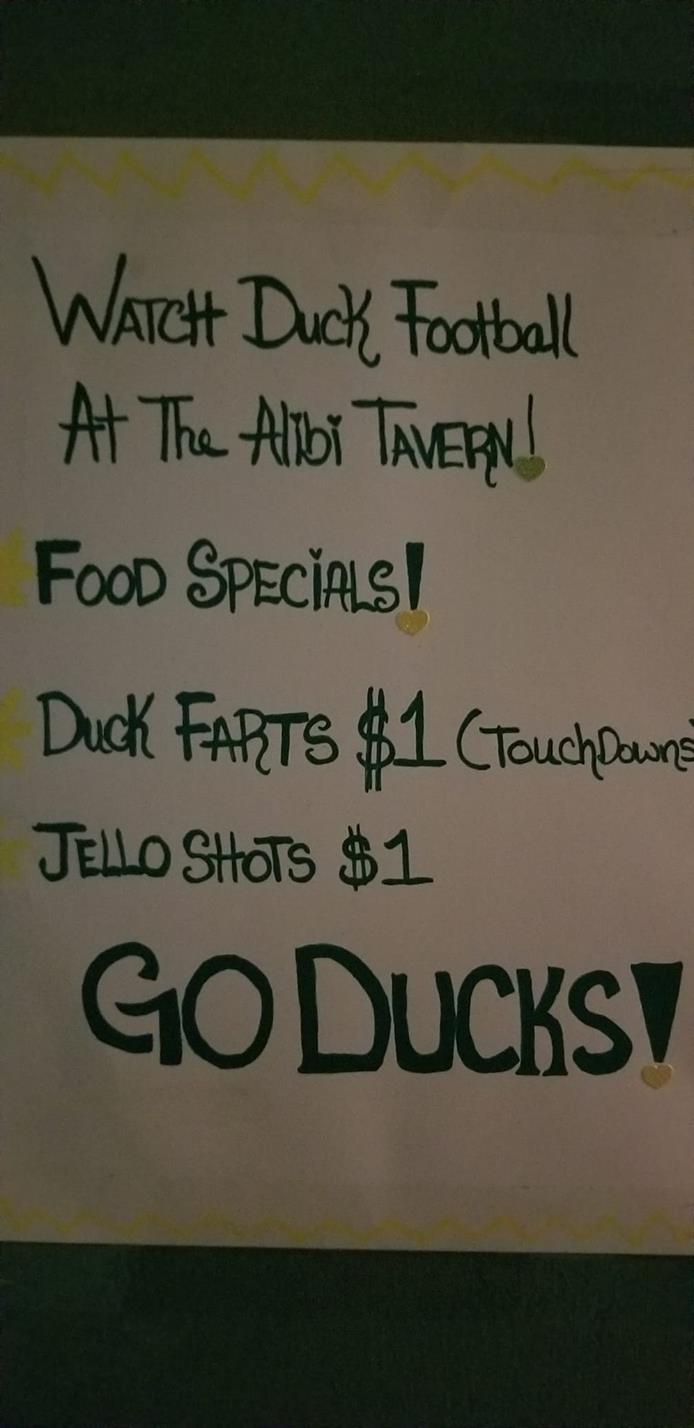 WATCH Duck Football
At The Alibi TAVERN!
FOOD SPECiALS!
Duck FARTS $1 (TouchDowns
JELLO SHOTS $1
GO DUCKS!